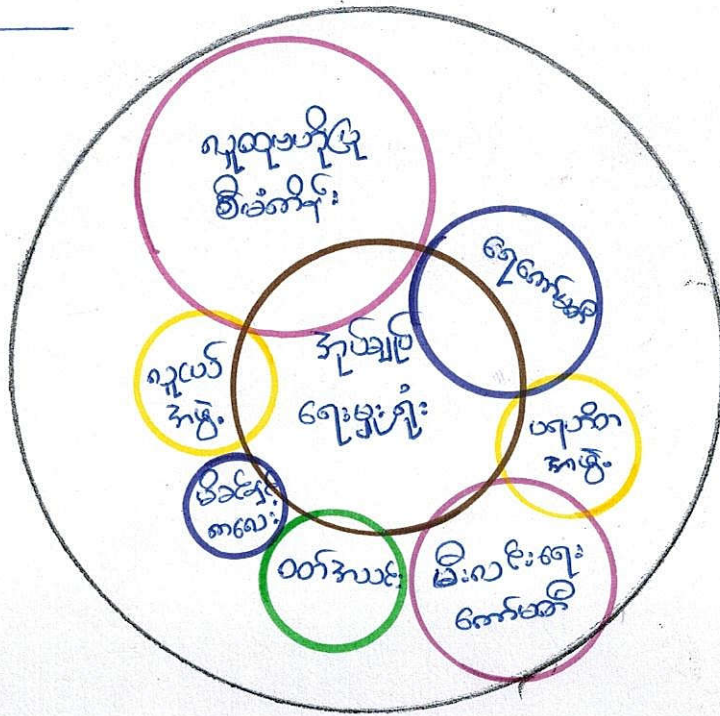 လူထုဗဟိုပြု
စီမံကိန်း
ရေကော်မတီ
အုပ်ချုပ်
ရေးမှူးရုံး
လူငယ်
အဖွဲ့
ပရဟိတ
အဖွဲ့
မိခင်နှင့်
ကလေး
ဝတ်အသင်း
မီးလင်းရေး
ကော်မတီ